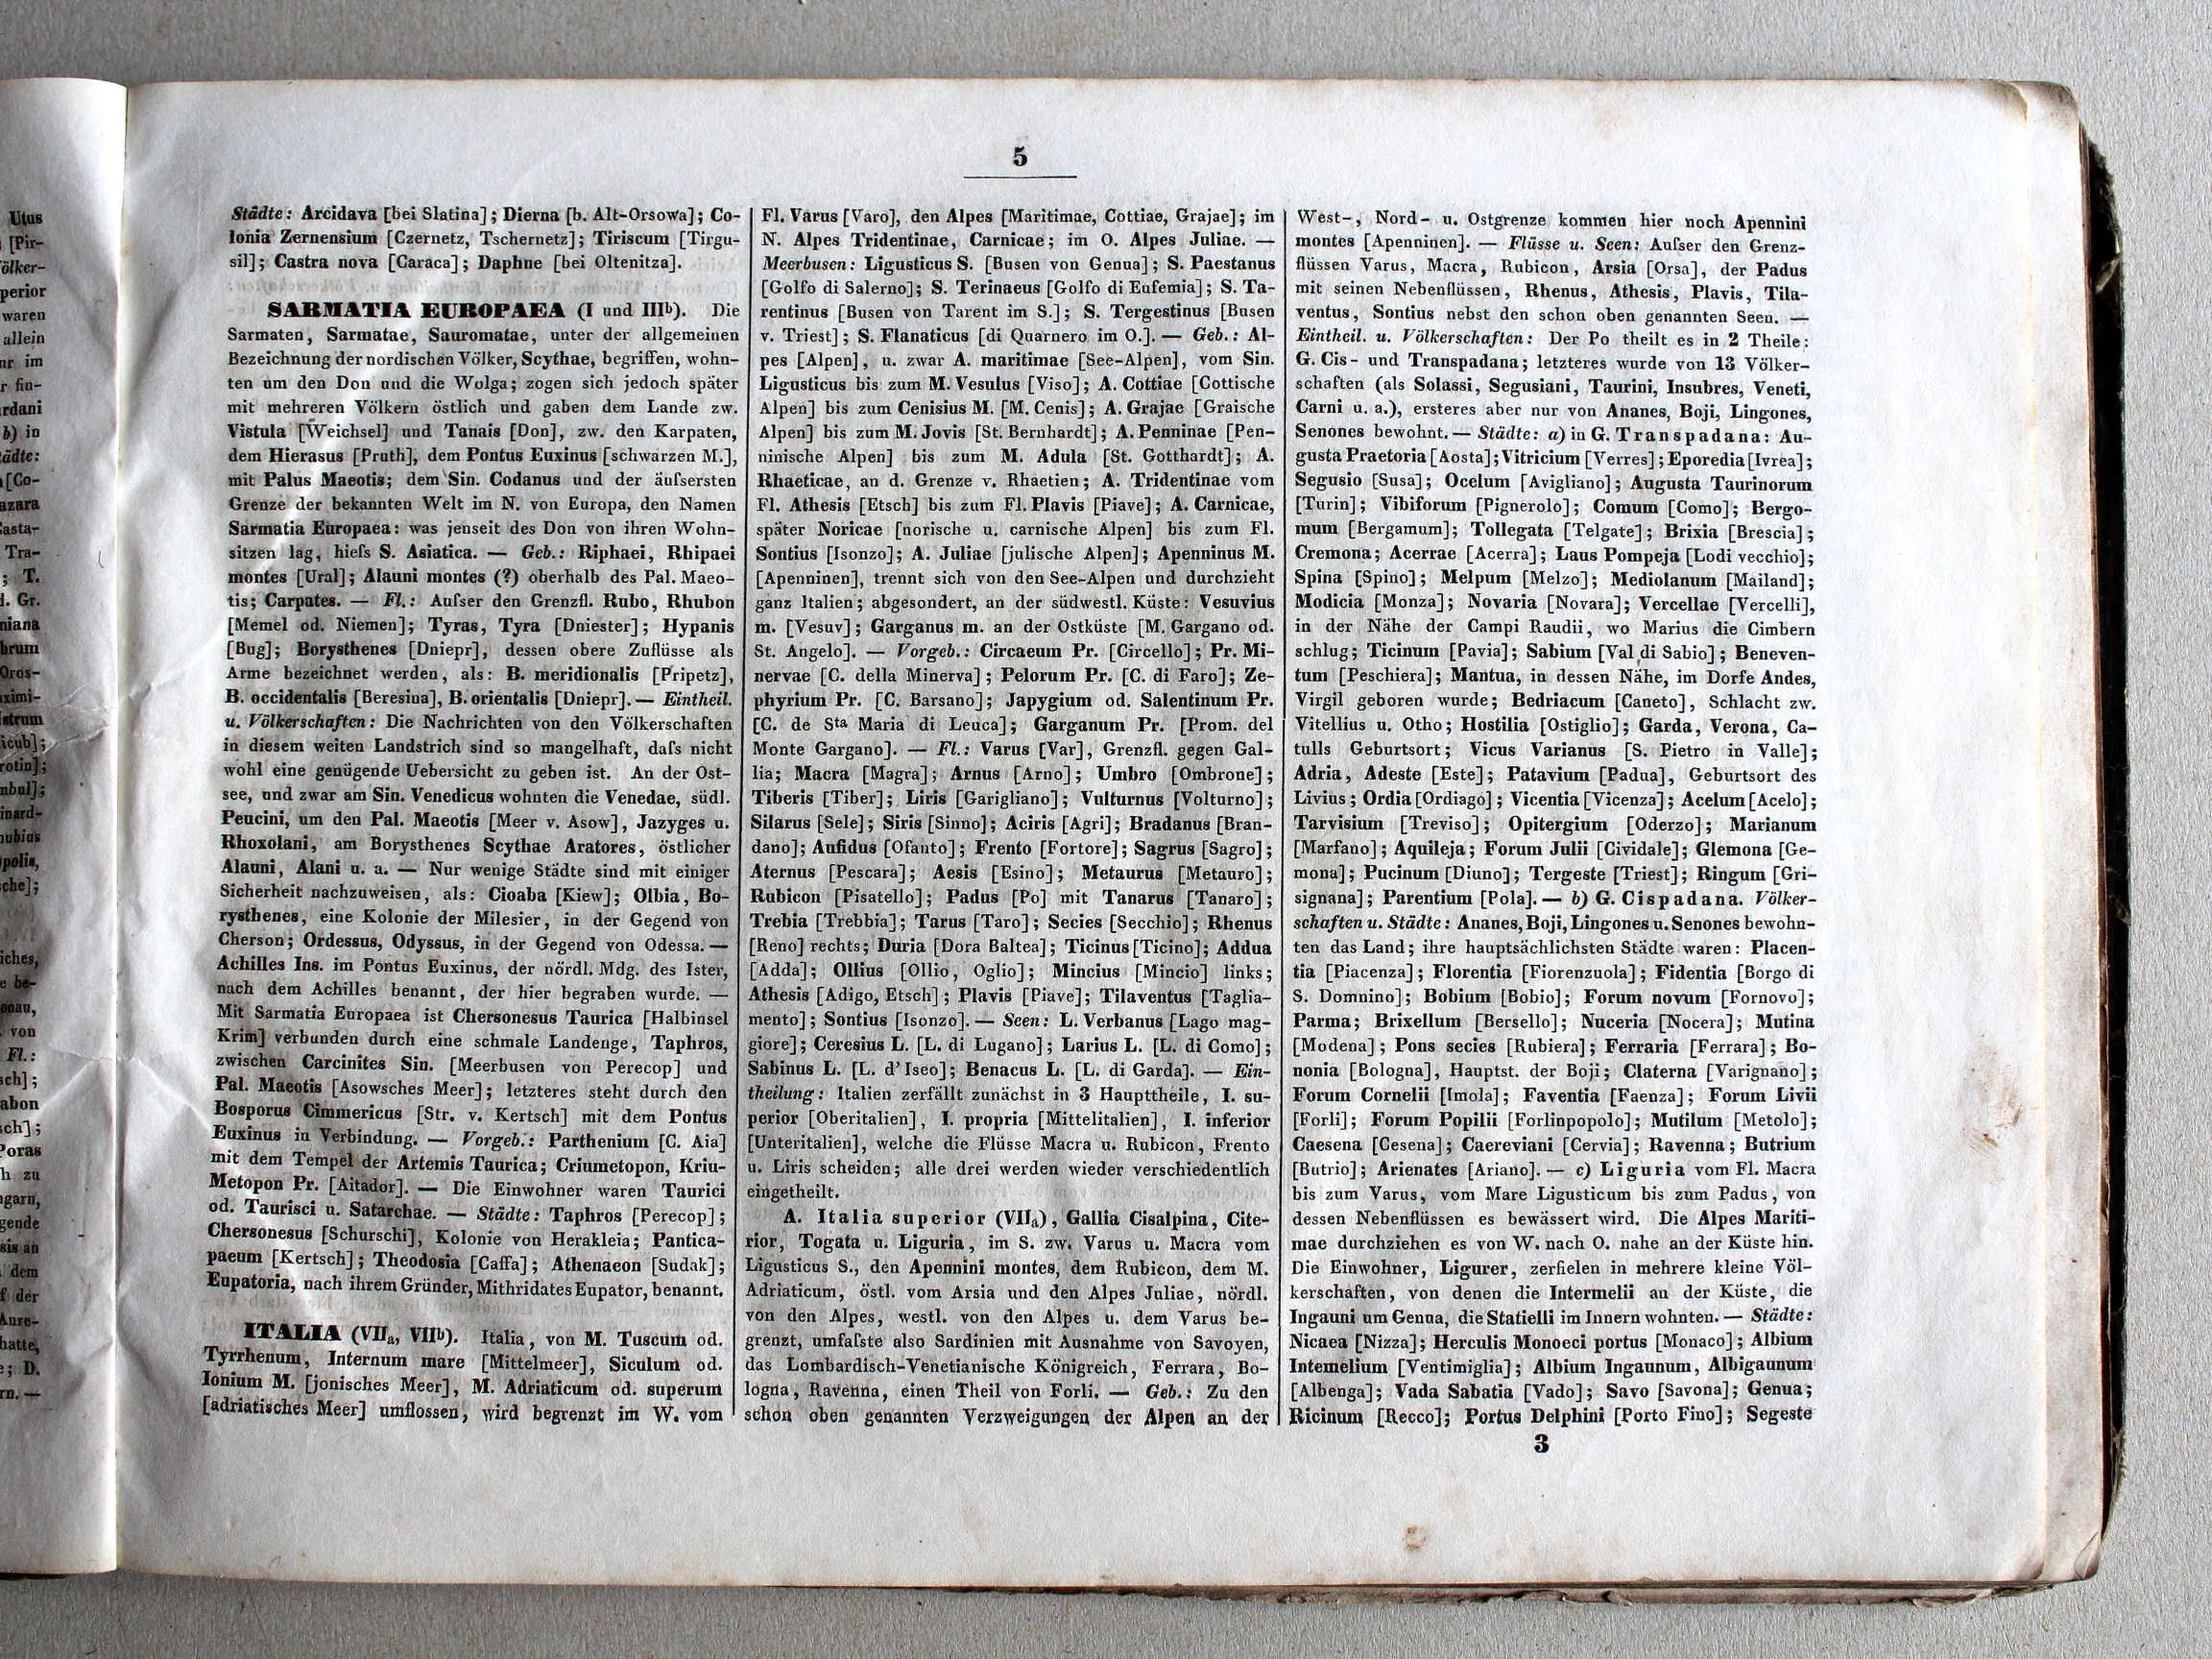 Utus
[Pir-
ölker-
perior
waren
allein
nr im
r fin-
rdani
b) in
tädte:
[Co-
azara
Casta-
Tra-
; T.
d. Gr.
niana
brum
Oros-
ximi-
strum
icub];
rotin];
nbul];
inard-
nubius
polis,
che];
iches,
e be-
onau,
von
Fl.:
sch];
abon
sch];
Poras
h zu
garn,
gende
sis an
dem
f der
Aure-
hatte,
e; D.
rn. —
5
Städte: Arcidava [bei Slatina]; Dierna [b. Alt-Orsowa]; Co-
lonia Zernensium [Czernetz, Tschernetz]; Tiriscum [Tirgu-
sil]; Castra nova [Caraca]; Daphne [bei Oltenitza].
SARMATIA EUROPAEA (I und IIIb). Die
Sarmaten, Sarmatae, Sauromatae, unter der allgemeinen
Bezeichnung der nordischen Völker, Scythae, begriffen, wohn-
ten um den Don und die Wolga; zogen sich jedoch später
mit mehreren Völkern östlich und gaben dem Lande zw.
Vistula [Weichsel] und Tanais [Don], zw. den Karpaten,
dem Hierasus [Pruth], dem Pontus Euxinus [schwarzen M.],
mit Palus Maeotis; dem Sin. Codanus und der äufsersten
Grenze der bekannten Welt im N. von Europa, den Namen
Sarmatia Europaea: was jenseit des Don von ihren Wohn-
sitzen lag, hiefs S. Asiatica. — Geb.: Riphaei, Rhipaei
montes [Ural]; Alauni montes (?) oberhalb des Pal. Maeo-
tis; Carpates. — Fl.: Aufser den Grenzfl. Rubo, Rhubon
[Memel od. Niemen]; Tyras, Tyra [Dniester]; Hypanis
[Bug]; Borysthenes [Dniepr], dessen obere Zuflüsse als
Arme bezeichnet werden, als: B. meridionalis [Pripetz],
B. occidentalis [Beresina], B. orientalis [Dniepr]. — Eintheil.
u. Völkerschaften: Die Nachrichten von den Völkerschaften
in diesem weiten Landstrich sind so mangelhaft, dafs nicht
wohl eine genügende Uebersicht zu geben ist. An der Ost-
see, und zwar am Sin. Venedicus wohnten die Venedae, südl.
Peucini, um den Pal. Maeotis [Meer v. Asow], Jazyges u.
Rhoxolani, am Borysthenes Scythae Aratores, östlicher
Alauni, Alani u. a. — Nur wenige Städte sind mit einiger
Sicherheit nachzuweisen, als: Cioaba [Kiew]; Olbia, Bo-
rysthenes, eine Kolonie der Milesier, in der Gegend von
Cherson; Ordessus, Odyssus, in der Gegend von Odessa. —
Achilles Ins. im Pontus Euxinus, der nördl. Mdg. des Ister,
nach dem Achilles benannt, der hier begraben wurde. —
Mit Sarmatia Europaea ist Chersonesus Taurica [Halbinsel
Krim] verbunden durch eine schmale Landenge, Taphros,
zwischen Carcinites Sin. [Meerbusen von Perecop] und
Pal. Maeotis [Asowsches Meer]; letzteres steht durch den
Bosporus Cimmericus [Str. v. Kertsch] mit dem Pontus
Euxinus in Verbindung. — Vorgeb.: Parthenium [C. Aia]
mit dem Tempel der Artemis Taurica; Criumetopon, Kriu-
Metopon Pr. [Aitador]. — Die Einwohner waren Taurici
od. Taurisci u. Satarchae. — Städte: Taphros [Perecop];
Chersonesus [Schurschi], Kolonie von Herakleia; Pantica-
paeum [Kertsch]; Theodosia [Caffa]; Athenaeon [Sudak];
Eupatoria, nach ihrem Gründer, Mithridates Eupator, benannt.
ITALIA (VIIa, VIIb). Italia, von M. Tuscum od.
Tyrrhenum, Internum mare [Mittelmeer], Siculum od.
Ionium M. [jonisches Meer], M. Adriaticum od. superum
[adriatisches Meer] umflossen, wird begrenzt im W. vom
Fl. Varus [Varo], den Alpes [Maritimae, Cottiae, Grajae]; im
N. Alpes Tridentinae, Carnicae; im O. Alpes Juliae. —
Meerbusen: Ligusticus S. [Busen von Genua]; S. Paestanus
[Golfo di Salerno]; S. Terinaeus [Golfo di Eufemia]; S. Ta-
rentinus [Busen von Tarent im S.]; S. Tergestinus [Busen
v. Triest]; S. Flanaticus [di Quarnero im O.]. — Geb.: Al-
pes [Alpen], u. zwar A. maritimae [See-Alpen], vom Sin.
Ligusticus bis zum M. Vesulus [Viso]; A. Cottiae [Cottische
Alpen] bis zum Cenisius M. [M. Cenis]; A. Grajae [Graische
Alpen] bis zum M. Jovis [St. Bernhardt]; A. Penninae [Pen-
ninische Alpen] bis zum M. Adula [St. Gotthardt]; A.
Rhaeticae, an d. Grenze v. Rhaetien; A. Tridentinae vom
Fl. Athesis [Etsch] bis zum Fl. Plavis [Piave]; A. Carnicae,
später Noricae [norische u. carnische Alpen] bis zum Fl.
Sontius [Isonzo]; A. Juliae [julische Alpen]; Apenninus M.
[Apenninen], trennt sich von den See-Alpen und durchzieht
ganz Italien; abgesondert, an der südwestl. Küste: Vesuvius
m. [Vesuv]; Garganus m. an der Ostküste [M. Gargano od.
St. Angelo]. — Vorgeb.: Circaeum Pr. [Circello]; Pr. Mi-
nervae [C. della Minerva]; Pelorum Pr. [C. di Faro]; Ze-
phyrium Pr. [C. Barsano]; Japygium od. Salentinum Pr.
[C. de Sta Maria di Leuca]; Garganum Pr. [Prom. del
Monte Gargano]. — Fl.: Varus [Var], Grenzfl. gegen Gal-
lia; Macra [Magra]; Arnus [Arno]; Umbro [Ombrone];
Tiberis [Tiber]; Liris [Garigliano]; Vulturnus [Volturno];
Silarus [Sele]; Siris [Sinno]; Aciris [Agri]; Bradanus [Bran-
dano]; Aufidus [Ofanto]; Frento [Fortore]; Sagrus [Sagro];
Aternus [Pescara]; Aesis [Esino]; Metaurus [Metauro];
Rubicon [Pisatello]; Padus [Po] mit Tanarus [Tanaro];
Trebia [Trebbia]; Tarus [Taro]; Secies [Secchio]; Rhenus
[Reno] rechts; Duria [Dora Baltea]; Ticinus [Ticino]; Addua
[Adda]; Ollius [Ollio, Oglio]; Mincius [Mincio] links;
Athesis [Adigo, Etsch]; Plavis [Piave]; Tilaventus [Taglia-
mento]; Sontius [Isonzo]. — Seen: L. Verbanus [Lago mag-
giore]; Ceresius L. [L. di Lugano]; Larius L. [L. di Como];
Sabinus L. [L. d'Iseo]; Benacus L. [L. di Garda]. — Ein-
theilung: Italien zerfällt zunächst in 3 Haupttheile, I. su-
perior [Oberitalien], I. propria [Mittelitalien], I. inferior
[Unteritalien], welche die Flüsse Macra u. Rubicon, Frento
u. Liris scheiden; alle drei werden wieder verschiedentlich
eingetheilt.
A. Italia superior (VIIa), Gallia Cisalpina, Cite-
rior, Togata u. Liguria, im S. zw. Varus u. Macra vom
Ligusticus S., den Apennini montes, dem Rubicon, dem M.
Adriaticum, östl. vom Arsia und den Alpes Juliae, nördl.
von den Alpes, westl. von den Alpes u. dem Varus be-
grenzt, umfafste also Sardinien mit Ausnahme von Savoyen,
das Lombardisch-Venetianische Königreich, Ferrara, Bo-
logna, Ravenna, einen Theil von Forli. — Geb.: Zu den
schon oben genannten Verzweigungen der Alpen an der
West-, Nord- u. Ostgrenze kommen hier noch Apennini
montes [Apenninen]. — Flüsse u. Seen: Aufser den Grenz-
flüssen Varus, Macra, Rubicon, Arsia [Orsa], der Padus
mit seinen Nebenflüssen, Rhenus, Athesis, Plavis, Tila-
ventus, Sontius nebst den schon oben genannten Seen. —
Eintheil. u. Völkerschaften: Der Po theilt es in 2 Theile:
G. Cis- und Transpadana; letzteres wurde von 13 Völker-
schaften (als Solassi, Segusiani, Taurini, Insubres, Veneti,
Carni u. a.), ersteres aber nur von Ananes, Boji, Lingones,
Senones bewohnt. — Städte: a) in G. Transpadana: Au-
gusta Praetoria [Aosta]; Vitricium [Verres]; Eporedia [Ivrea];
Segusio [Susa]; Ocelum [Avigliano]; Augusta Taurinorum
[Turin]; Vibiforum [Pignerolo]; Comum [Como]; Bergo-
mum [Bergamum]; Tollegata [Telgate]; Brixia [Brescia];
Cremona; Acerrae [Acerra]; Laus Pompeja [Lodi vecchio];
Spina [Spino]; Melpum [Melzo]; Mediolanum [Mailand];
Modicia [Monza]; Novaria [Novara]; Vercellae [Vercelli],
in der Nähe der Campi Raudii, wo Marius die Cimbern
schlug; Ticinum [Pavia]; Sabium [Val di Sabio]; Beneven-
tum [Peschiera]; Mantua, in dessen Nähe, im Dorfe Andes,
Virgil geboren wurde; Bedriacum [Caneto], Schlacht zw.
Vitellius u. Otho; Hostilia [Ostiglio]; Garda, Verona, Ca-
tulls Geburtsort; Vicus Varianus [S. Pietro in Valle];
Adria, Adeste [Este]; Patavium [Padua], Geburtsort des
Livius; Ordia [Ordiago]; Vicentia [Vicenza]; Acelum [Acelo];
Tarvisium [Treviso]; Opitergium [Oderzo]; Marianum
[Marfano]; Aquileja; Forum Julii [Cividale]; Glemona [Ge-
mona]; Pucinum [Diuno]; Tergeste [Triest]; Ringum [Gri-
signana]; Parentium [Pola]. — b) G. Cispadana. Völker-
schaften u. Städte: Ananes, Boji, Lingones u. Senones bewohn-
ten das Land; ihre hauptsächlichsten Städte waren: Placen-
tia [Piacenza]; Florentia [Fiorenzuola]; Fidentia [Borgo di
S. Domnino]; Bobium [Bobio]; Forum novum [Fornovo];
Parma; Brixellum [Bersello]; Nuceria [Nocera]; Mutina
[Modena]; Pons secies [Rubiera]; Ferraria [Ferrara]; Bo-
nonia [Bologna], Hauptst. der Boji; Claterna [Varignano];
Forum Cornelii [Imola]; Faventia [Faenza]; Forum Livii
[Forli]; Forum Popilii [Forlinpopolo]; Mutilum [Metolo];
Caesena [Cesena]; Caereviani [Cervia]; Ravenna; Butrium
[Butrio]; Arienates [Ariano]. — c) Liguria vom Fl. Macra
bis zum Varus, vom Mare Ligusticum bis zum Padus, von
dessen Nebenflüssen es bewässert wird. Die Alpes Mariti-
mae durchziehen es von W. nach O. nahe an der Küste hin.
Die Einwohner, Ligurer, zerfielen in mehrere kleine Völ-
kerschaften, von denen die Intermelii an der Küste, die
Ingauni um Genua, die Statielli im Innern wohnten. — Städte:
Nicaea [Nizza]; Herculis Monoeci portus [Monaco]; Albium
Intemelium [Ventimiglia]; Albium Ingaunum, Albigaunum
[Albenga]; Vada Sabatia [Vado]; Savo [Savona]; Genua;
Ricinum [Recco]; Portus Delphini [Porto Fino]; Segeste
3